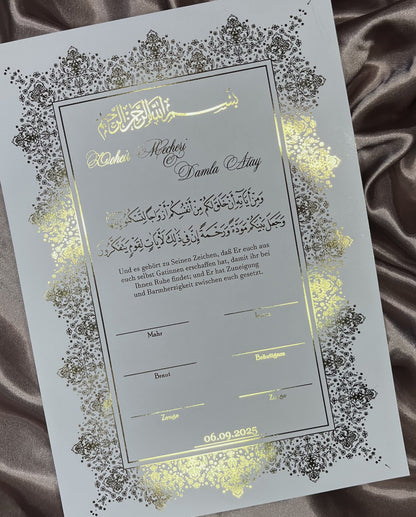 بسم الله الرحمن الرحيم
Mecheri
&
Damla Atay
ومن آياته أن خلق لكم من أنفسكم أزواجا لتسكنوا إليها
وجعل بينكم مودة ورحمة إن في ذلك لآيات لقوم يتفكرون
Und es gehört zu Seinen Zeichen, daß Er euch aus
euch selbst Gatinnen erschaffen hat, damit ihr bei
Ihnen Ruhe findet; und Er hat Zuneigung
und Barmherzigkeit zwischen euch gesetzt.
Mahr
Braut
Bräutigam
Zeuge
Zeuge
06.09.2025